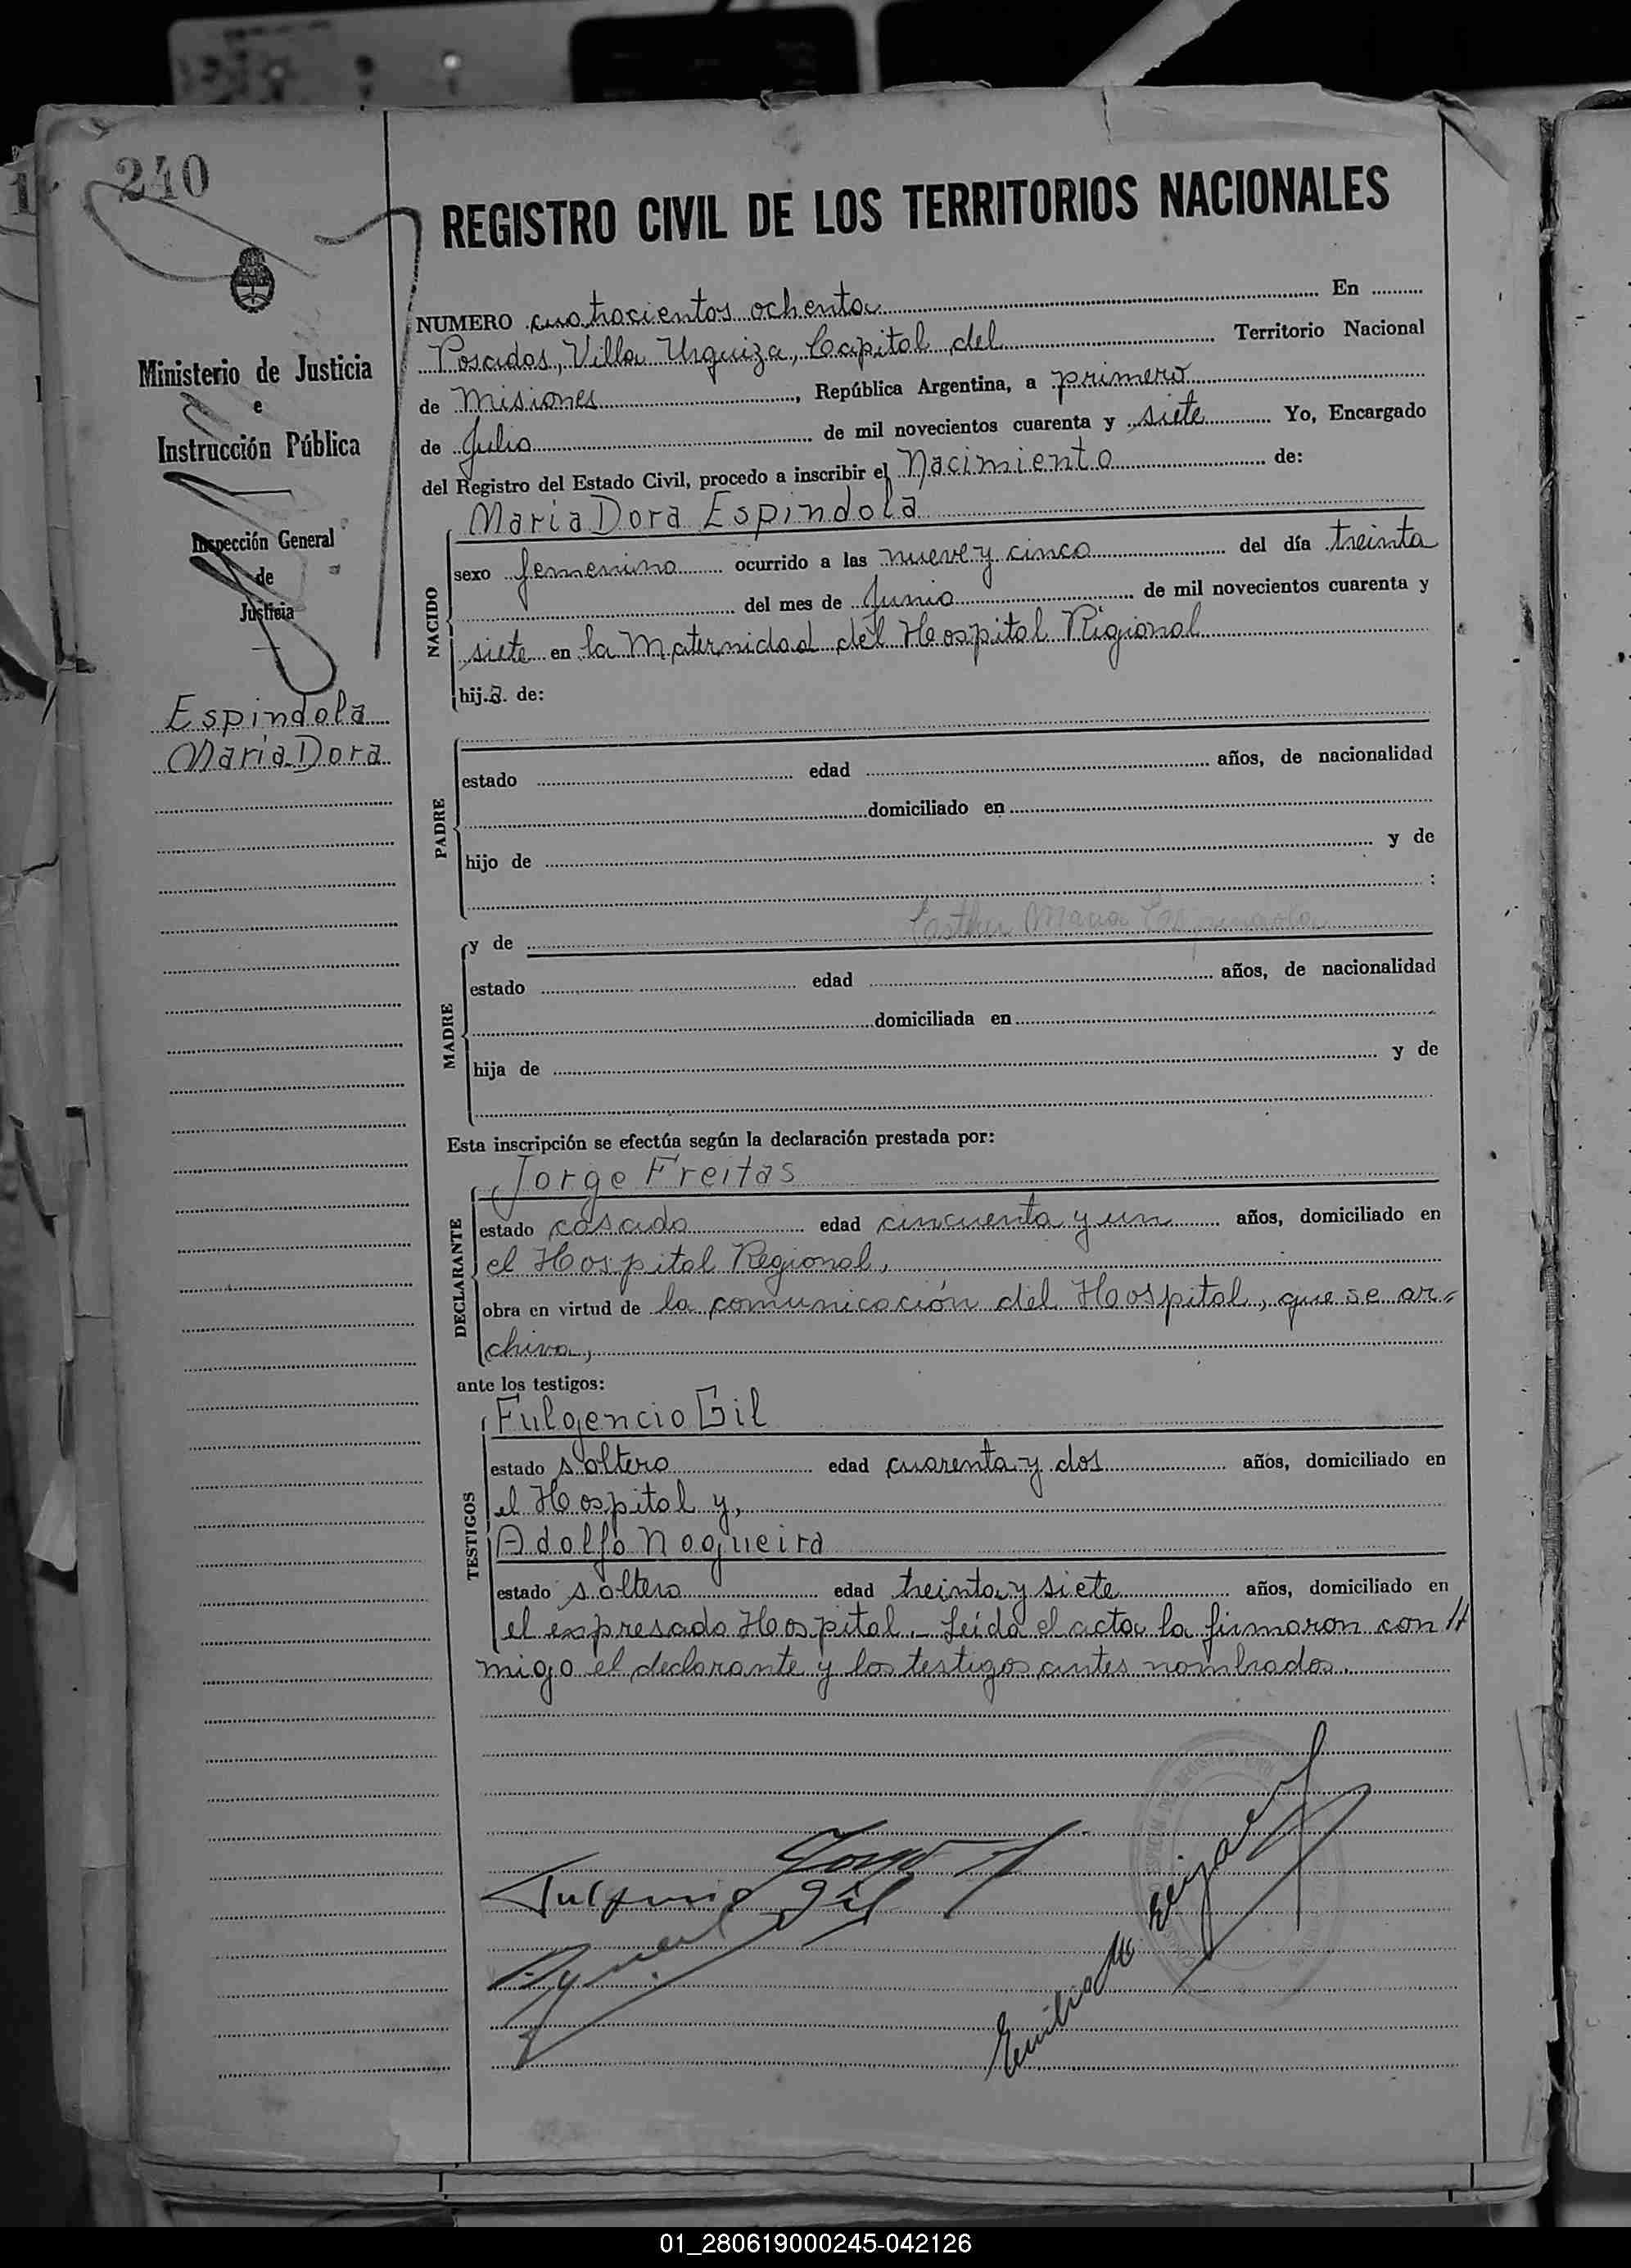 240
REGISTRO CIVIL DE LOS TERRITORIOS NACIONALES
Ministerio de Justicia
e
Instrucción Pública
Inspección General
de
Justicia
Espindola
Maria Dora
NUMERO cuatrocientos ochenta En
Posadas, Villa Urquiza, Capital del Territorio Nacional
de Misiones, República Argentina, a primero
de Julio de mil novecientos cuarenta y siete Yo, Encargado
del Registro del Estado Civil, procedo a inscribir el Nacimiento de:
NACIDO
Maria Dora Espindola
sexo femenino ocurrido a las nueve y cinco del día treinta
del mes de Junio de mil novecientos cuarenta y
siete en la Maternidad del Hospital Rigional
hij.a. de:
PADRE
estado edad años, de nacionalidad
domiciliado en
hijo de y de
:
MADRE
y de Esther Maria Espindola
estado edad años, de nacionalidad
domiciliada en
hija de y de
Esta inscripción se efectúa según la declaración prestada por:
DECLARANTE
Jorge Freitas
estado casado edad cincuenta y un años, domiciliado en
el Hospital Regional,
obra en virtud de la comunicación del Hospital, que se ar=
chiva,
ante los testigos:
TESTIGOS
Fulgencio Gil
estado soltero edad cuarenta y dos años, domiciliado en
el Hospital y,
Adolfo Nogueira
estado soltero edad treinta y siete años, domiciliado en
el expresado Hospital.- Leída el acta la firmaron con
migo el declarante y los testigos antes nombrados.
Fulgencio Gil
Emilio
01_280619000245-042126